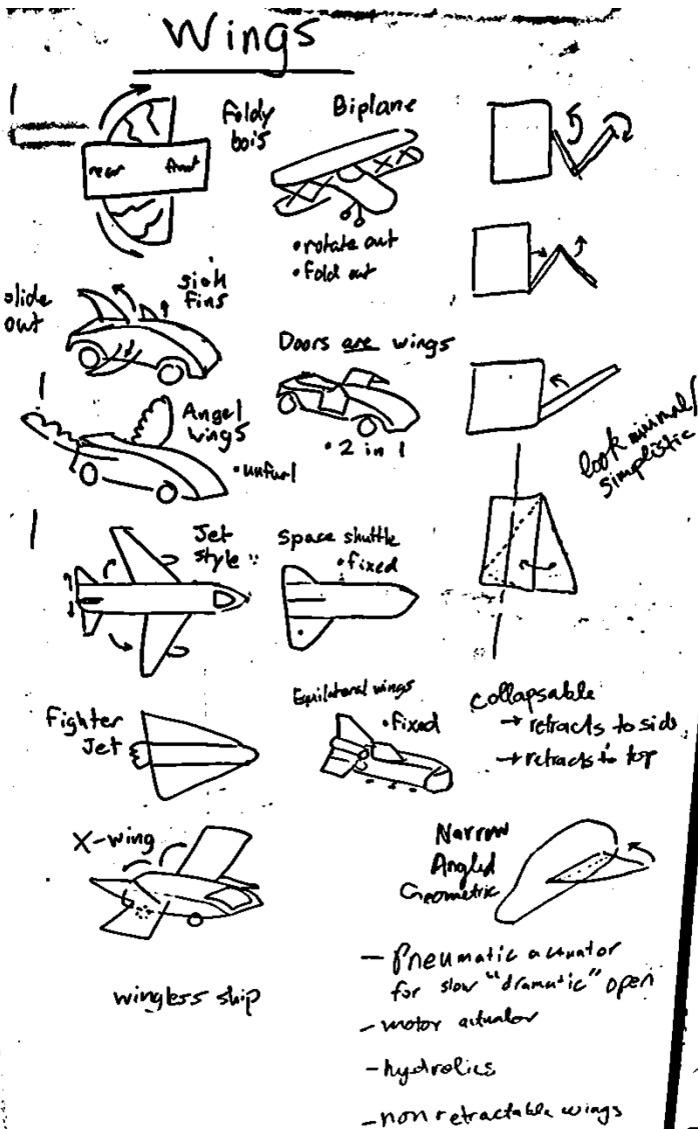 Wings
Foldy
bois
rear front
Biplane
• rotate out
• fold out
slide
out
sick
fins
Doors are wings
• 2 in 1
Angel
wings
• unfurl
look minimal/
simplistic
Jet
style
Space shuttle
• fixed
Fighter
Jet
Equilateral wings
• fixed
collapsable
→ retracts to side
→ retracts to top
X-wing
Narrow
Angled
Geometric
wingless ship
- Pneumatic actuator
for slow "dramatic" open
- motor actuator
- hydrolics
- non retractable wings